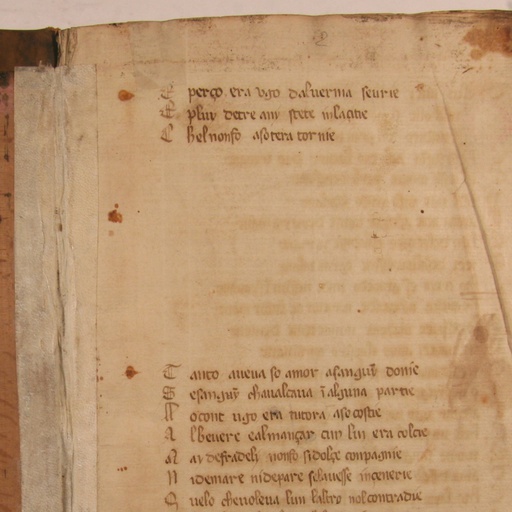 E perço era ugo daluernia seurie
E plur detre ani stete in laçitie
C hel nonfo asotera tornie
T anto aueua so amor asanguȳ donie
S esanguȳ chaualcaua ī alguna partie
N o cont ugo era tutora aso costie
A lbeuere eal mançar cun lui era colcie
M ai de fradeli nonfo si dolçe conpagnie
N i demare ni depare sclauesse ingenerie
Q uelo cheuoleua lun laltro nol contradie